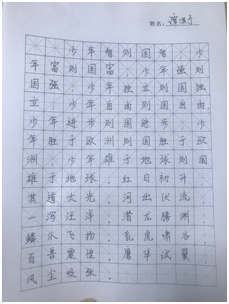 姓名：
少年智则国智，少
年富则国富，少年强则
国强，少年独立则国独
立，少年自由则国自由，
少年进步则国进步，少
年胜于欧洲则国胜于欧
洲，少年雄于地球则国
雄于地球。红日初升，
其道大光。河出伏流，
一泻汪洋。潜龙腾渊，
鳞爪飞扬。乳虎啸谷，
百兽震惶。鹰隼试翼，
风尘吸张。